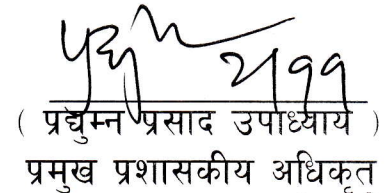 ( प्रद्युम्न प्रसाद उपाध्याय )
प्रमुख प्रशासकीय अधिकृत